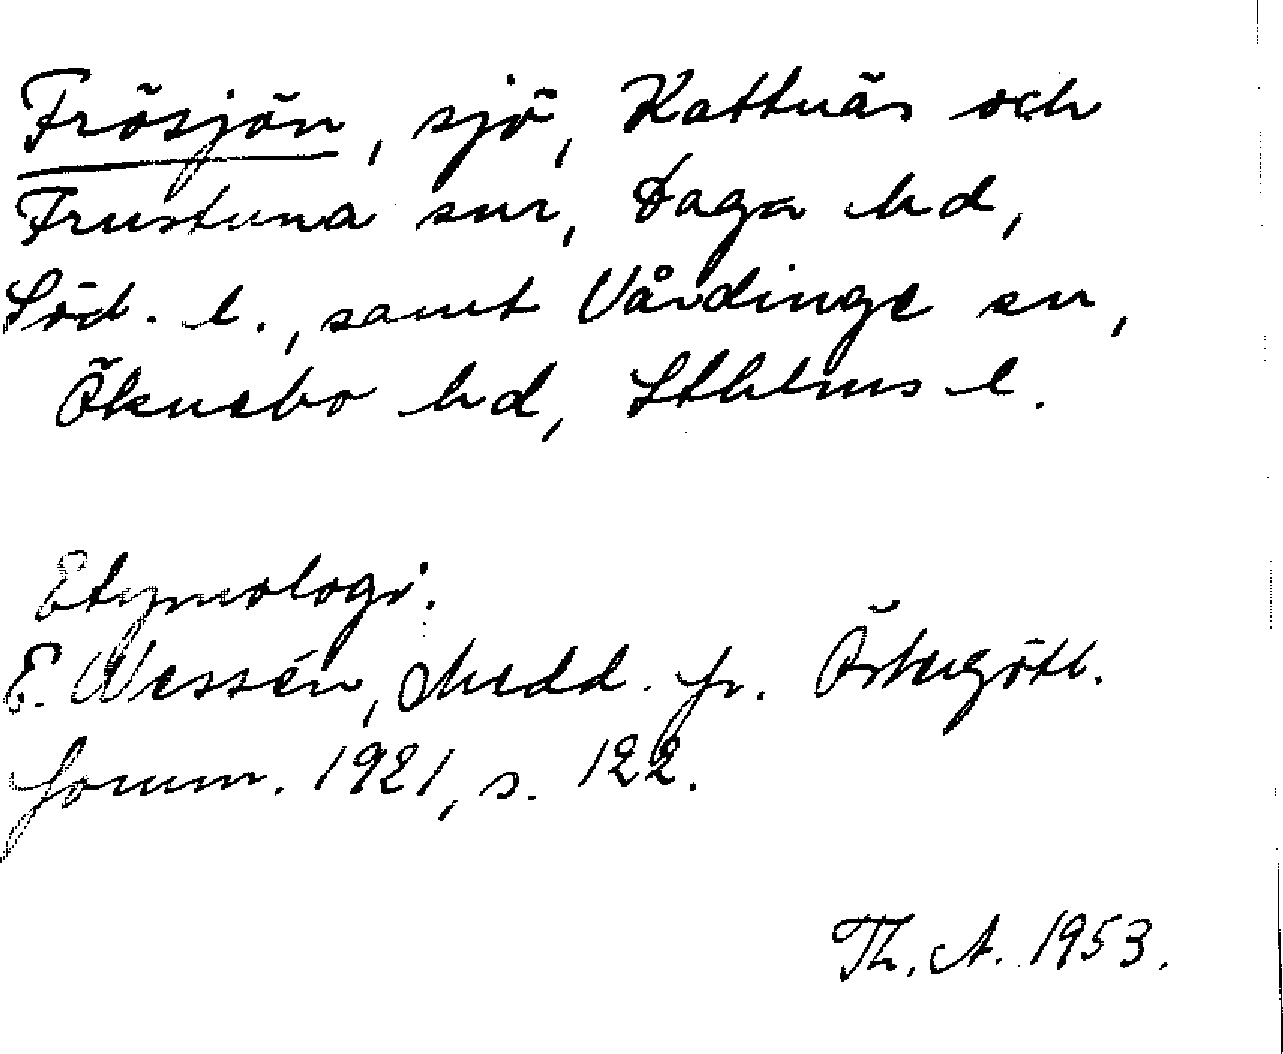 Frösjön, sjö, Kattnäs och
Frustuna snr, Daga hd,
Söd. l., samt Vårdinge sn,
Öknebo hd, Sthlms l.
Etymologi.
E. Wessén, Medd. fr. Östergötl.
fornm. 1921, s. 122.
Th. A. 1953.